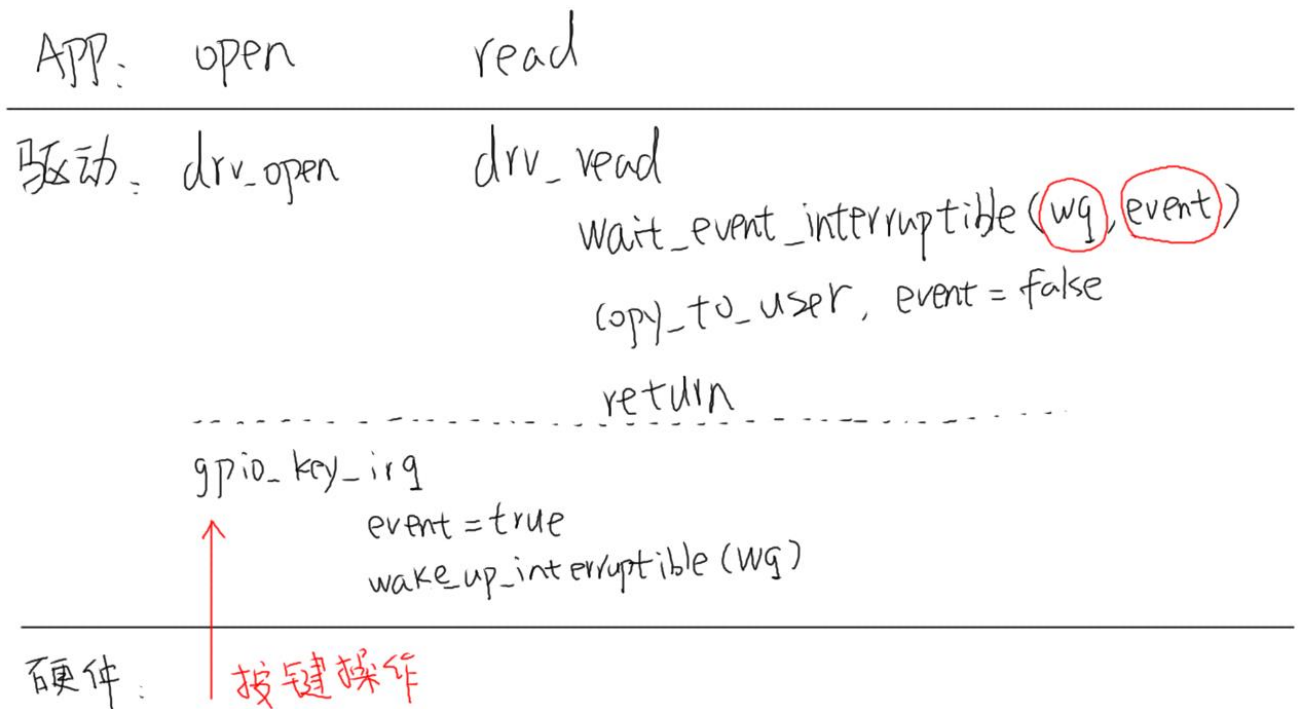 APP: open read
驱动: drv_open drv_read
wait_event_interruptible(wq, event)
copy_to_user, event = false
return
gpio_key_irq
event = true
wake_up_interruptible(wq)
硬件: 按键操作